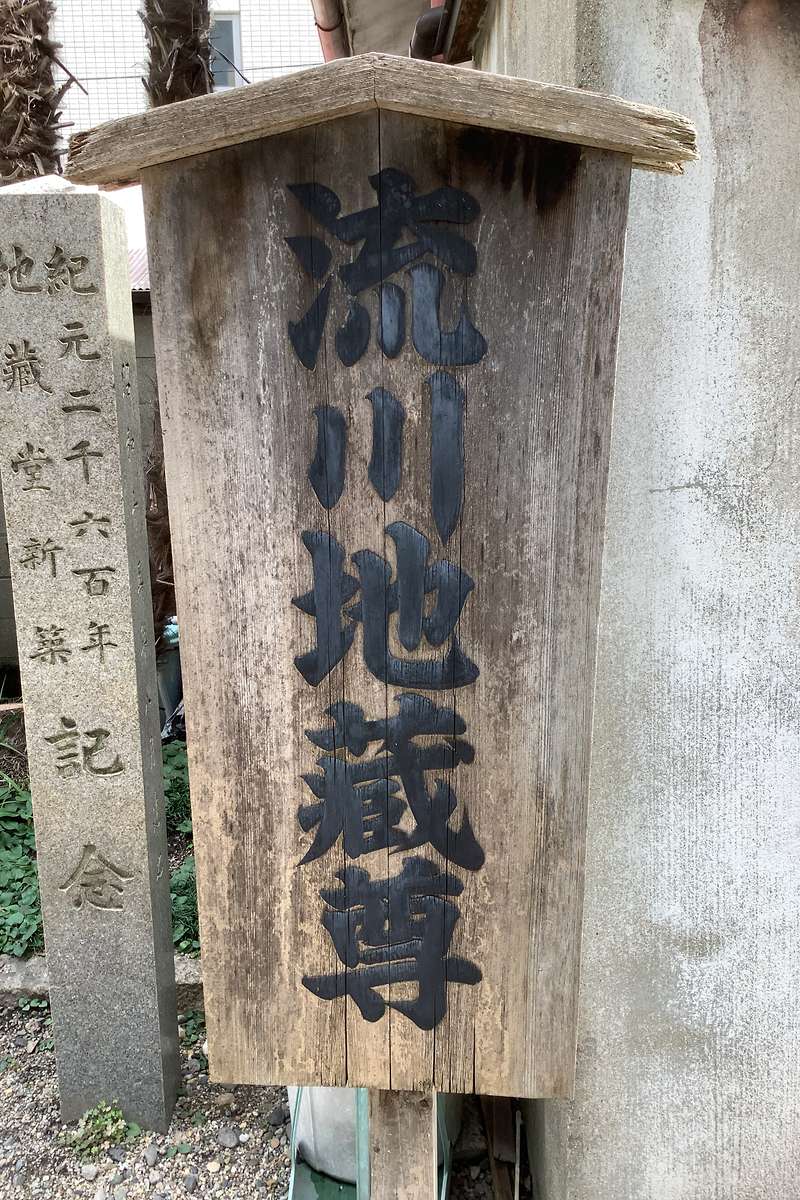 流川地蔵尊
紀元二千六百年
地蔵堂新築
記念